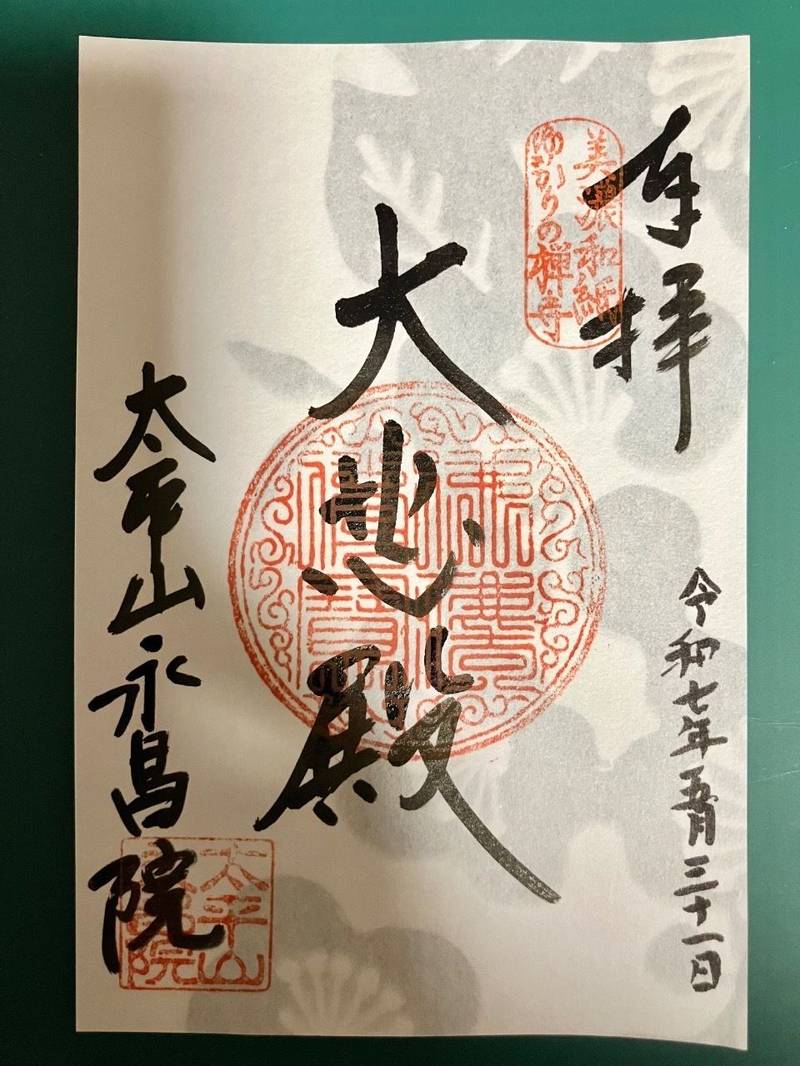 奉拝
令和七年五月三十一日
美濃和紙
ゆかりの禅寺
大悲殿
佛法僧寶
太平山永昌院
太平山
永昌院